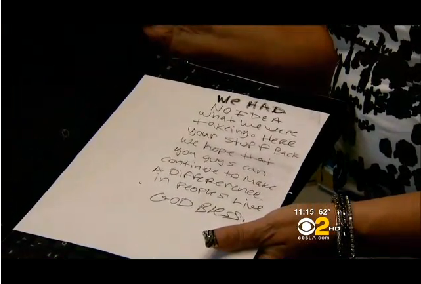 WE HAD
NO IDEA
what we were
takeing. Here
your stuff Back
we hope that
you guys can
continue to make
A DifferenCe
in peoples live
GOD BLESS
11:15 62°
2 HD
cbsla.com